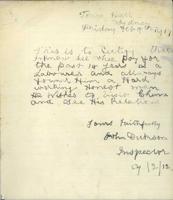 Town Hall
Sydney
Friday Feb 9th
This is to Certify that
I know Lee Hee Poy for
the past 14 years as a
Labourer and always
found Him a Hard
working Honest man
He Wishes to visit China
and See His Relations
Yours Faithfully
John Dickson
Inspector
9/2/12